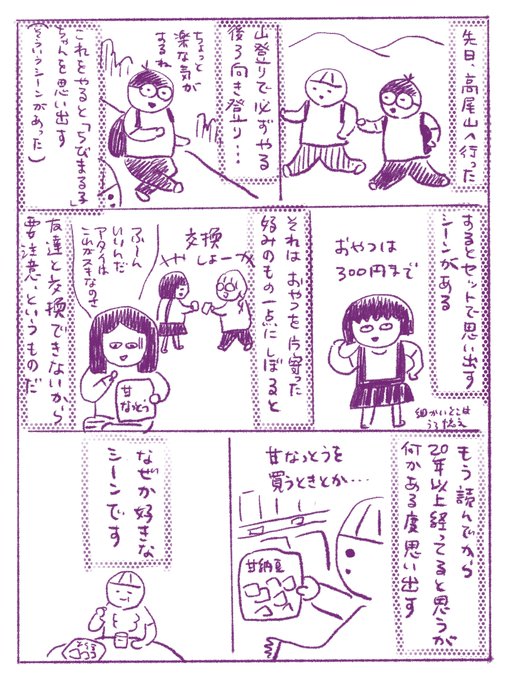 先日、高尾山へ行った
山登りで必ずやる
後ろ向き登り…
ちょっと
楽な気が
するね
これをやると「ちびまる子
ちゃんを思い出す
(そういうシーンがあった)
するとセットで思い出す
シーンがある
おやつは
300円まで
細かいとこは
うろ覚え
それは おやつを片寄った
好みのもの一点にしぼると
交換
しよーか
や
ふーん
いいんだ
アタシは
これがスキなので
甘
なっとう
友達と交換できないから
要注意、というものだ
もう読んでから
20年以上経ってると思うが
何かある度思い出す
甘なっとうを
買うときとか…
甘納豆
なぜか好きな
シーンです